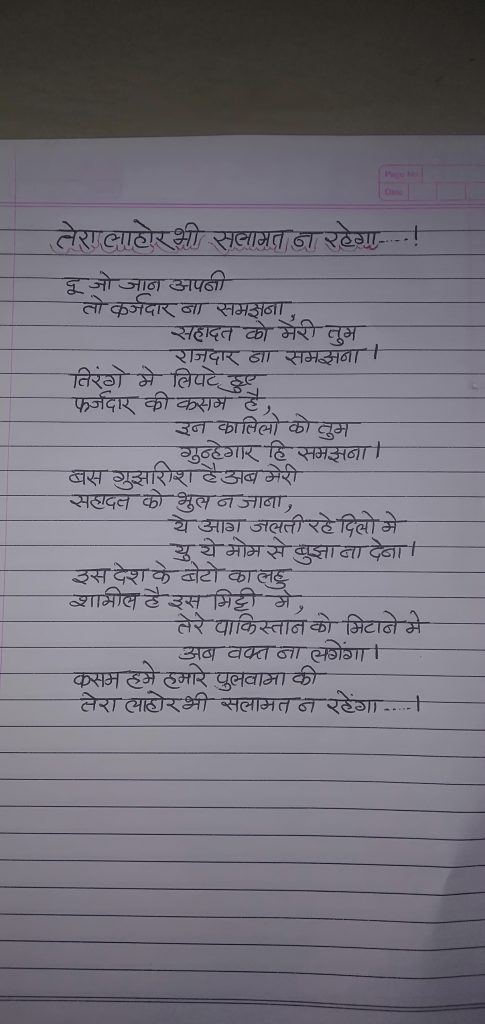 Page No.
Date
तेरा लाहोर भी सलामत न रहेगा-----!
दू जो जान अपनी
तो कर्जदार ना समझना,
सहादत को मेरी तुम
राजदार ना समझना।
तिरंगे मे लिपटे हुए
फर्जदार की कसम है,
इन कातिलो को तुम
गुन्हेगार हि समझना।
बस गुझारीश है अब मेरी
सहादत को भुल न जाना,
ये आग जलती रहे दिलो मे
यु ये मोम से बुझा ना देना।
इस देश के बेटो का लहु
शामील है इस मिट्टी मे,
तेरे पाकिस्तान को मिटाने मे
अब वक्त ना लगेंगा।
कसम हमे हमारे पुलवामा की
तेरा लाहोर भी सलामत न रहेंगा-----।